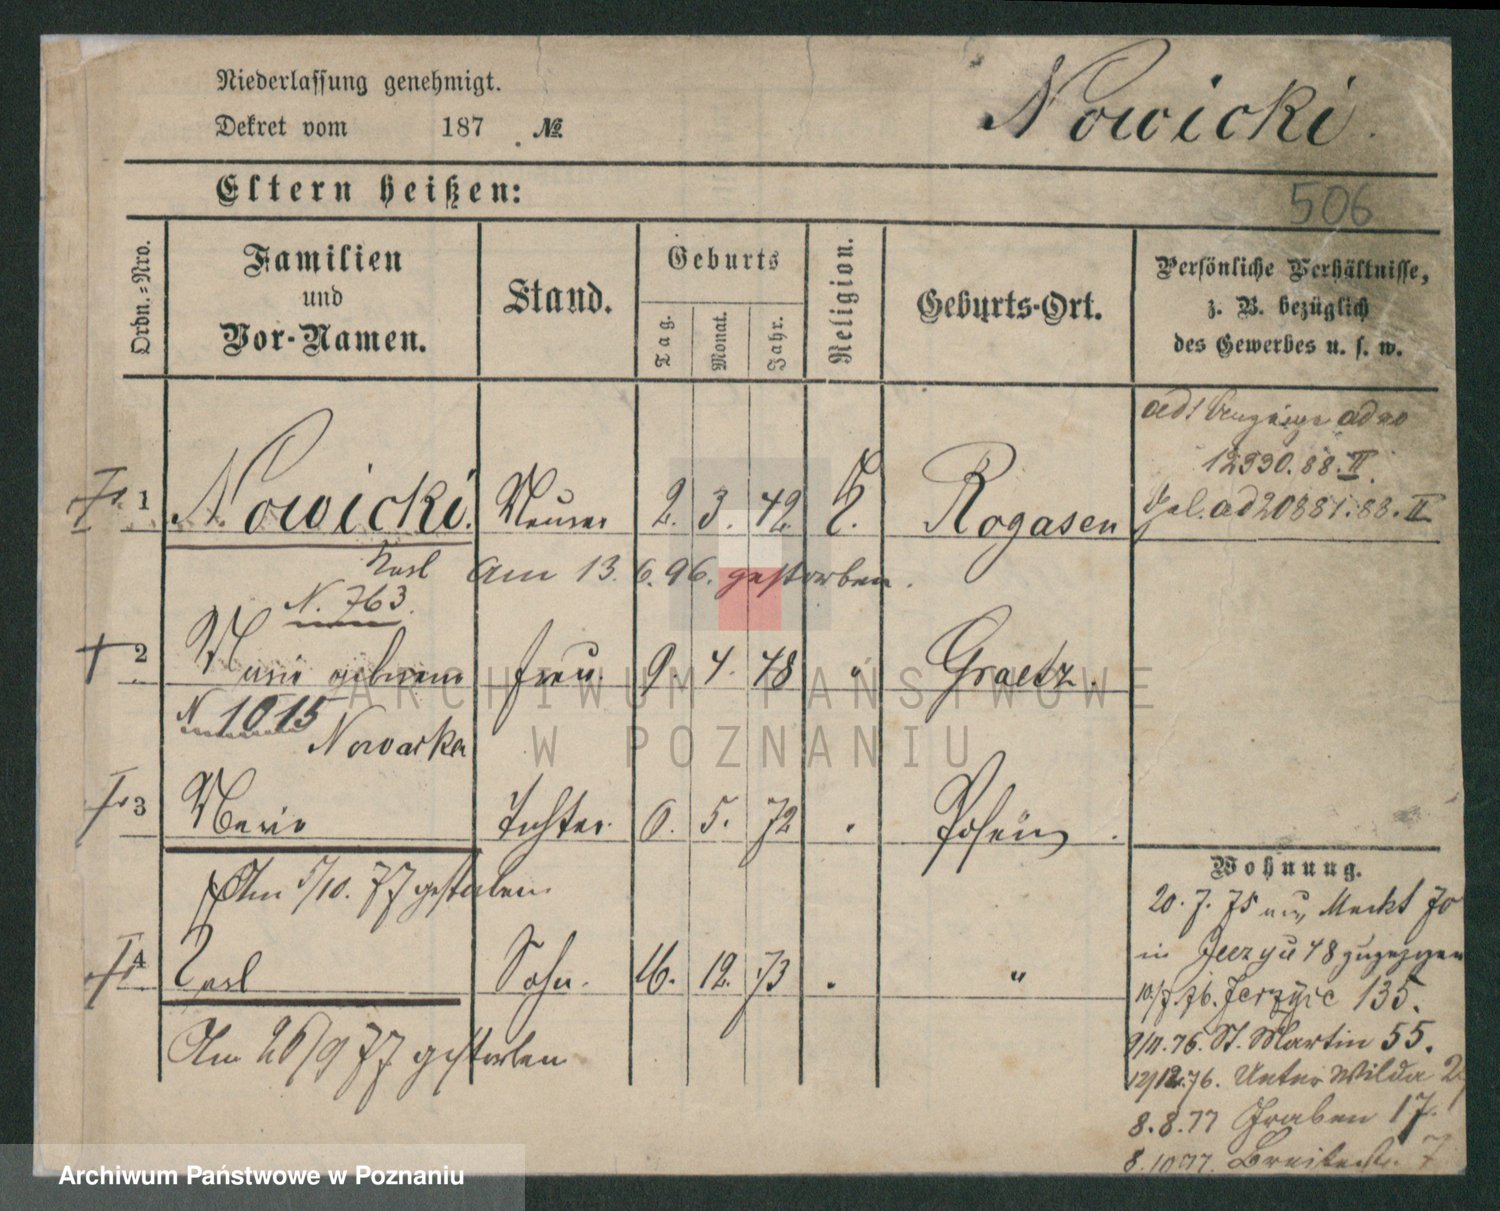 Niederlassung genehmigt.
Dekret vom 187 №
Nowicki.
Eltern heißen:
506
Ordn.-Nro.
Familien
und
Vor-Namen.
Stand.
Geburts
Tag.
Monat.
Jahr.
Religion.
Geburts-Ort.
Persönliche Verhältnisse,
z. B. bezüglich
des Gewerbes u. s. w.
1 Nowicki. Maurer 2. 3. 42. K. Rogasen
12930.88.II.
ad 20881.88.II
Karl am 13. 6. 96. gestorben.
N. 763.
2 Marie geborene Frau. 9. 4. 48 " Graetz.
N 1015
Nowacka
3 Marie Tochter. 6. 5. 72 " Posen.
Am 5/10. 77 gestorben
4 Karl Sohn. 16. 12. 73 " "
Am 26/9 77 gestorben
Wohnung.
20. 7. 75 Markt 70
in 48 zugezogen
10/7.76. Jerzyce 135.
9/11.76. St. Martin 55.
12/12.76. Unter Wilda 2
8.8.77 Graben 17.
8.10 77. Breitestr. 7
ARCHIWUM PAŃSTWOWE
W POZNANIU
Archiwum Państwowe w Poznaniu